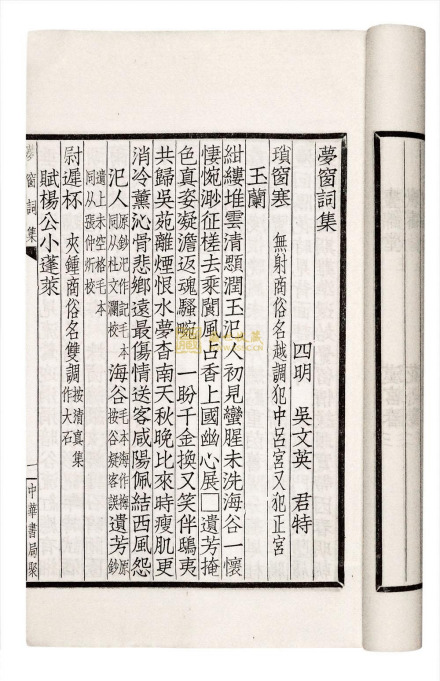 夢窗詞集
四明 吳文英 君特
瑣窗寒 無射商俗名越調犯中呂宮又犯正宮
玉蘭
紺縷堆雲清顋潤玉汜人初見蠻腥未洗海谷一懷
悽惋渺征槎去乘閬風占香上國幽心展□遺芳掩
色真姿凝澹返魂騷畹 一盼千金換又笑伴鴟夷
共歸吳苑離煙恨水夢杳南天秋晚比來時瘦肌更
消冷薰沁骨悲鄉遠最傷情送客咸陽佩結西風怨
汜人 原鈔汜作記毛本同从杜文瀾校 海谷 毛本海作梅原按谷疑客誤 遺芳 鈔
遺上未空格毛本同从張仲炘校
尉遲杯 夾鍾商俗名雙調 按清真集作大石
賦楊公小蓬萊
夢窗詞集
一 中華書局聚